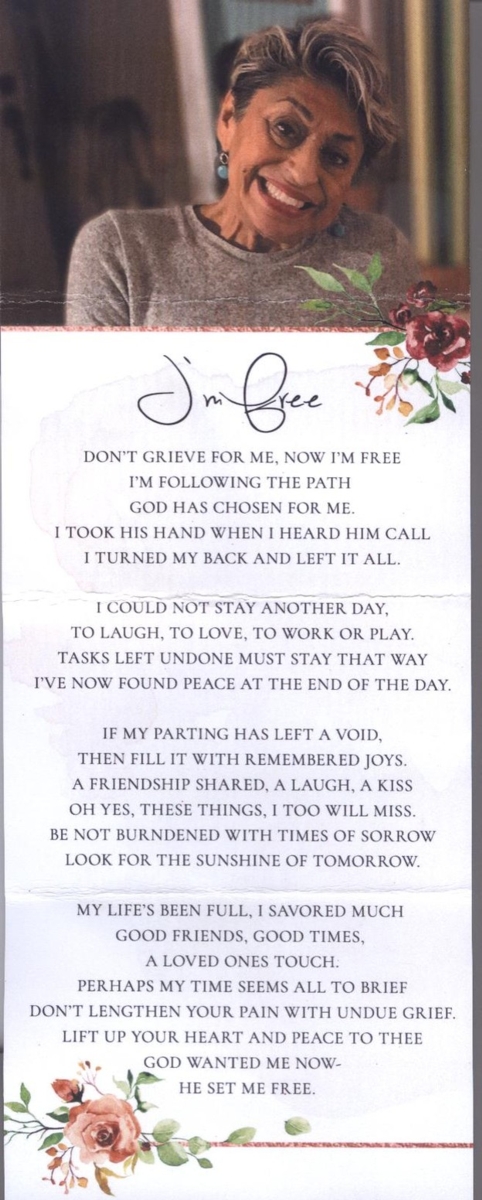 I'm Free
DON'T GRIEVE FOR ME, NOW I'M FREE
I'M FOLLOWING THE PATH
GOD HAS CHOSEN FOR ME.
I TOOK HIS HAND WHEN I HEARD HIM CALL
I TURNED MY BACK AND LEFT IT ALL.
I COULD NOT STAY ANOTHER DAY,
TO LAUGH, TO LOVE, TO WORK OR PLAY.
TASKS LEFT UNDONE MUST STAY THAT WAY
I'VE NOW FOUND PEACE AT THE END OF THE DAY.
IF MY PARTING HAS LEFT A VOID,
THEN FILL IT WITH REMEMBERED JOYS.
A FRIENDSHIP SHARED, A LAUGH, A KISS
OH YES, THESE THINGS, I TOO WILL MISS.
BE NOT BURNDENED WITH TIMES OF SORROW
LOOK FOR THE SUNSHINE OF TOMORROW.
MY LIFE'S BEEN FULL, I SAVORED MUCH
GOOD FRIENDS, GOOD TIMES,
A LOVED ONES TOUCH.
PERHAPS MY TIME SEEMS ALL TO BRIEF
DON'T LENGTHEN YOUR PAIN WITH UNDUE GRIEF.
LIFT UP YOUR HEART AND PEACE TO THEE
GOD WANTED ME NOW-
HE SET ME FREE.